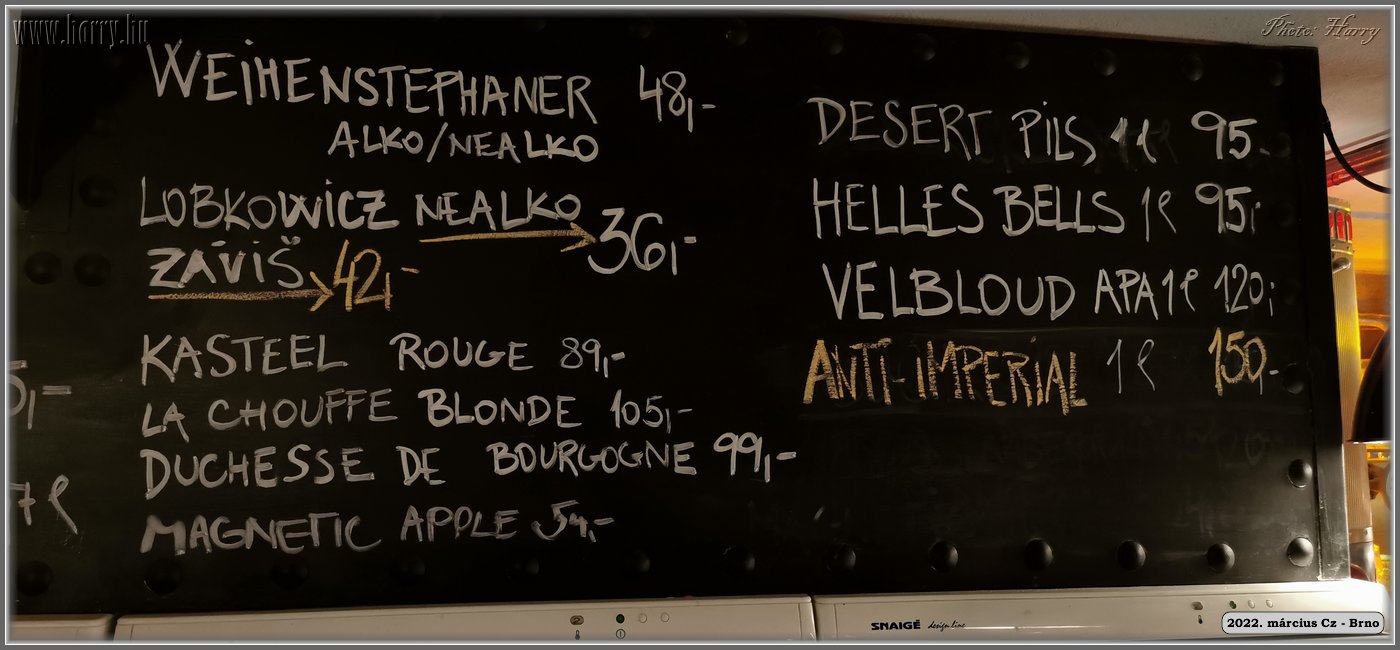 www.harry.hu
Photo: Harry
WEIHENSTEPHANER 48,-
ALKO/NEALKO
LOBKOWICZ NEALKO 36,-
ZÁVIŠ 42,-
KASTEEL ROUGE 89,-
LA CHOUFFE BLONDE 105,-
DUCHESSE DE BOURGOGNE 99,-
MAGNETIC APPLE 54,-
DESERT PILS 1l 95,-
HELLES BELLS 1l 95,-
VELBLOUD APA 1l 120,-
ANTI-IMPERIAL 1l 150,-
5,-
7l
SNAIGĖ design line
2022. március Cz - Brno